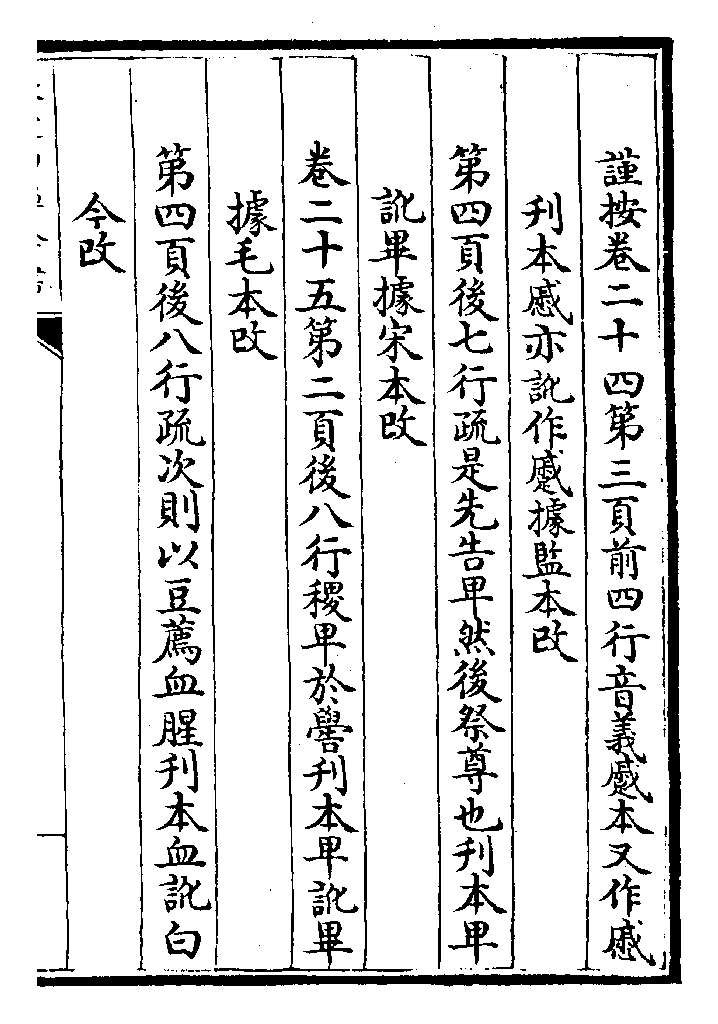 謹按卷二十四第三頁前四行音義蹙本又作戚
刋本戚亦訛作蹙據監本改
第四頁後七行疏是先告卑然後祭尊也刋本卑
訛畢據宋本改
卷二十五第二頁後八行稷卑於嚳刋本卑訛畢
據毛本改
第四頁後八行疏次則以豆薦血腥刋本血訛白
今改